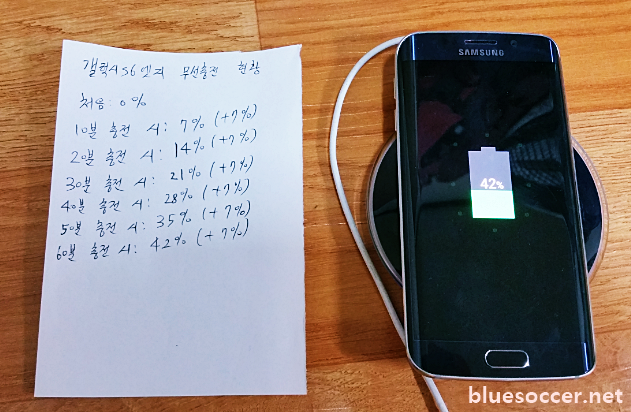 갤럭시 S6 엣지 무선충전 현황
처음: 0%
10분 충전 시: 7% (+7%)
20분 충전 시: 14% (+7%)
30분 충전 시: 21% (+7%)
40분 충전 시: 28% (+7%)
50분 충전 시: 35% (+7%)
60분 충전 시: 42% (+7%)
SAMSUNG
42%
bluesoccer.net